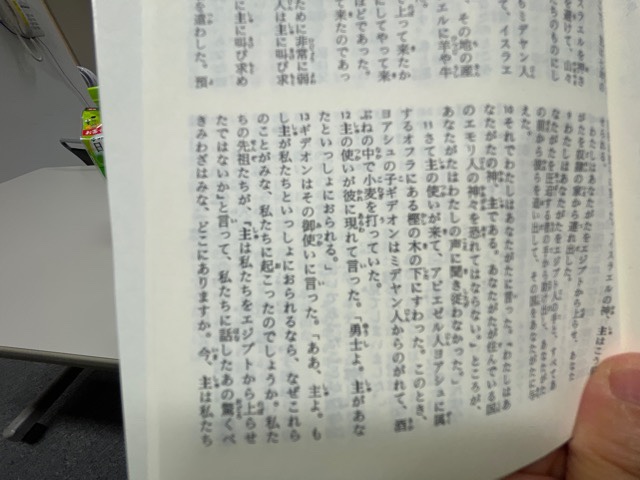 を遣わした。預
人は主に叫び求め
ために非常に弱
にしてやって来
ほどであった。
上って来たか
って来たのであっ
エルに羊や牛
、その地の産
もミデヤン人
て、イスラエ
を避けて、山々
イスラエルの神、主はこう
わたしはあなたがたをエジプトから上らせ、あな
がたを奴隷の家から連れ出した。
9 わたしはあなたがたをエジプト人の手と、すべてあ
えた。
10 それでわたしはあなたがたに言った。『わたしはあ
なたがたの神、主である。あなたがたが住んでいる国
のエモリ人の神々を恐れてはならない。』ところが、
あなたがたはわたしの声に聞き従わなかった。」
11 さて主の使いが来て、アビエゼル人ヨアシュに属
するオフラにある樫の木の下にすわった。このとき、
ヨアシュの子ギデオンはミデヤン人からのがれて、酒
ぶねの中で小麦を打っていた。
12 主の使いが彼に現れて言った。「勇士よ。主があな
たといっしょにおられる。」
13 ギデオンはその御使いに言った。「ああ、主よ。も
し主が私たちといっしょにおられるなら、なぜこれら
のことがみな、私たちに起こったのでしょうか。私た
ちの先祖たちが、『主は私たちをエジプトから上らせ
たではないか』と言って、私たちに話したあの驚くべ
きみわざはみな、どこにありますか。今、主は私たち